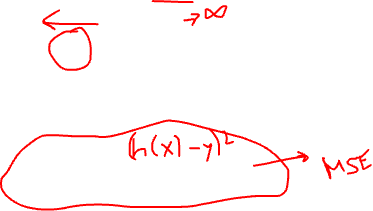 →∞
(h(x)-y)²
MSE